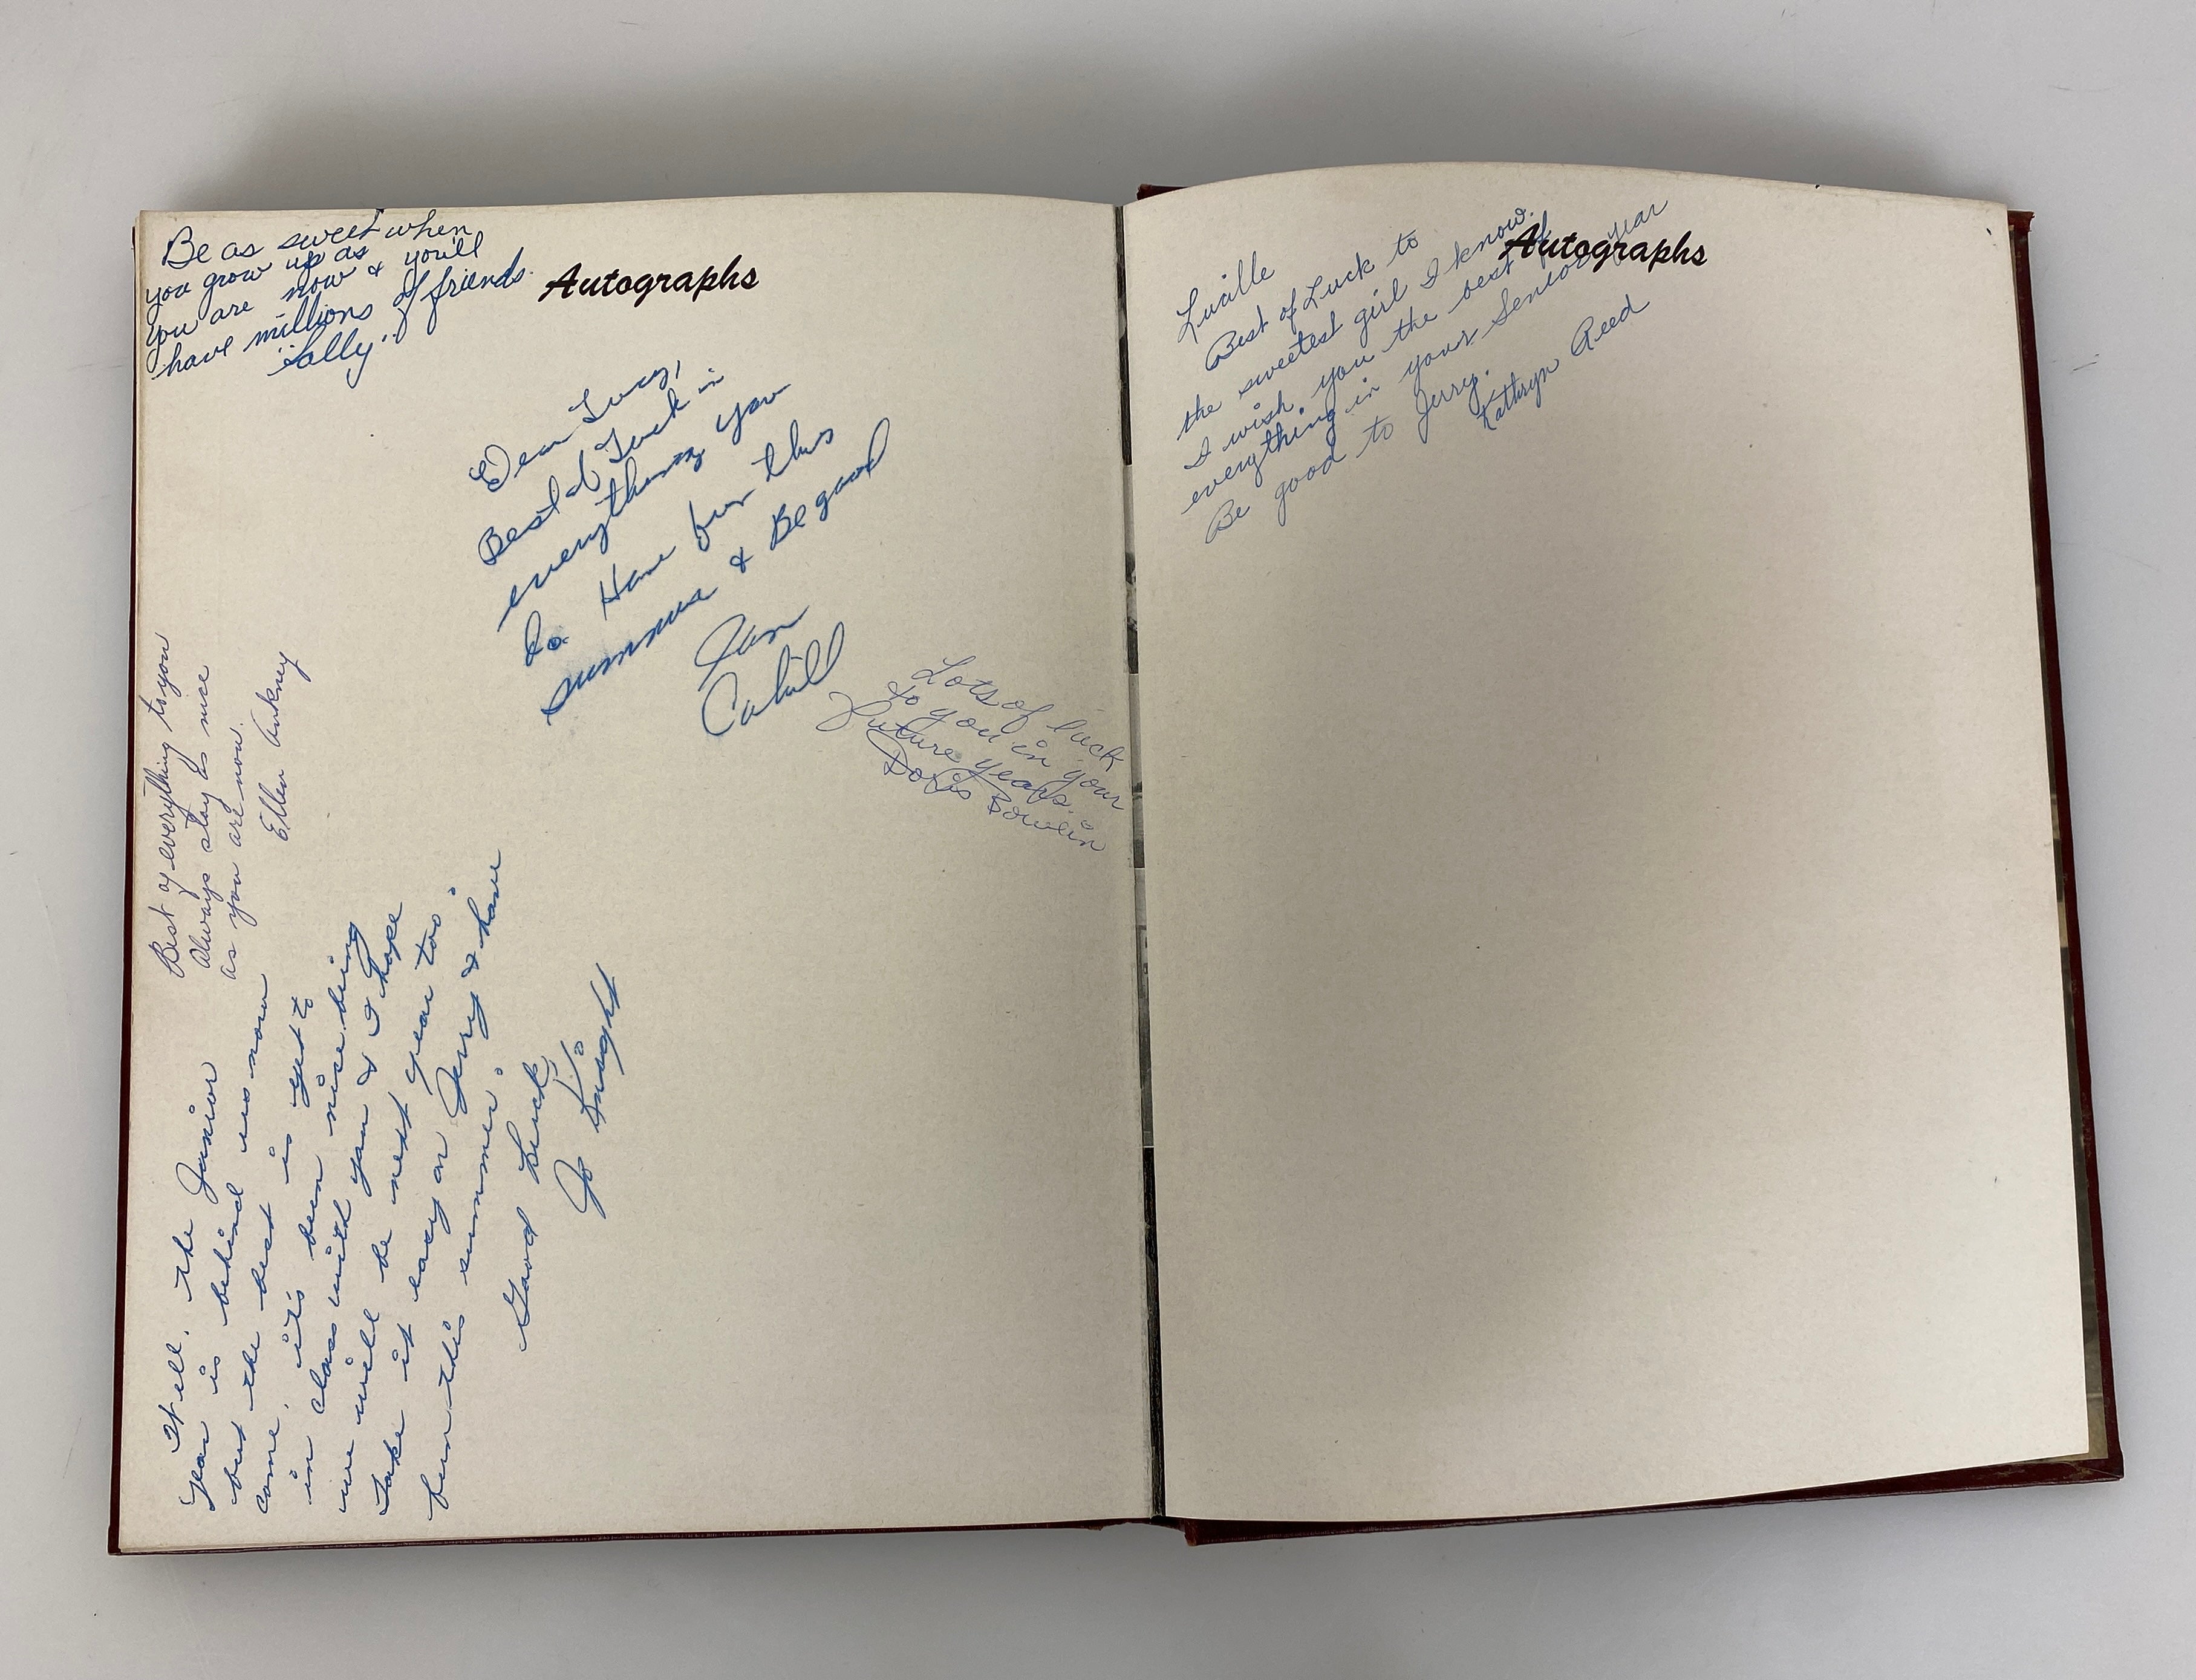 Be as sweet when
you grow up as
you are now & you'll
have millions of friends.
"Solly"
Autographs
Dear Lucy,
Best of Luck in
everything you
do. Have fun this
summer & Be good
Jan
Cahill
Lots of luck
to you in your
Future years.
Doris Bowlin
Best of everything to you
Always stay as nice
as you are now.
Ellen Ankney
Well, the Junior
year is behind us now
but the best is yet to
come, it's been nice being
in class with you & I hope
we will be next year too.
Take it easy on Jerry & have
fun this summer.
Good Luck,
Jo Knight
Autographs
Lucille
Best of Luck to
the sweetest girl I know.
I wish you the best of
everything in your Senior year
Be good to Jerry.
Kathryn Reed